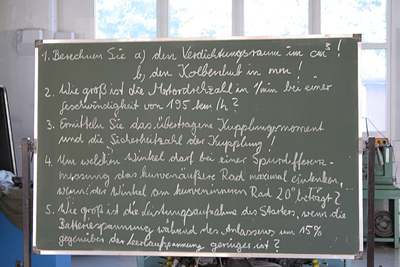 1. Berechnen Sie a) den Verdichtungsraum in cm³!
b) den Kolbenhub in mm!
2. Wie groß ist die Motordrehzahl in 1/min bei einer
Geschwindigkeit von 195 km/h?
3. Ermitteln Sie das übertragene Kupplungsmoment
und die Sicherheitzahl der Kupplung!
4. Um welchen Winkel darf bei einer Spurdifferenz-
messung das kurvenäußere Rad maximal einlenken,
wenn der Winkel am kurveninnern Rad 20° beträgt?
5. Wie groß ist die Leistungsaufnahme des Starters, wenn die
Batteriespannung während des Anlassens um 15%
gegenüber der Leerlaufspannung geringer ist?